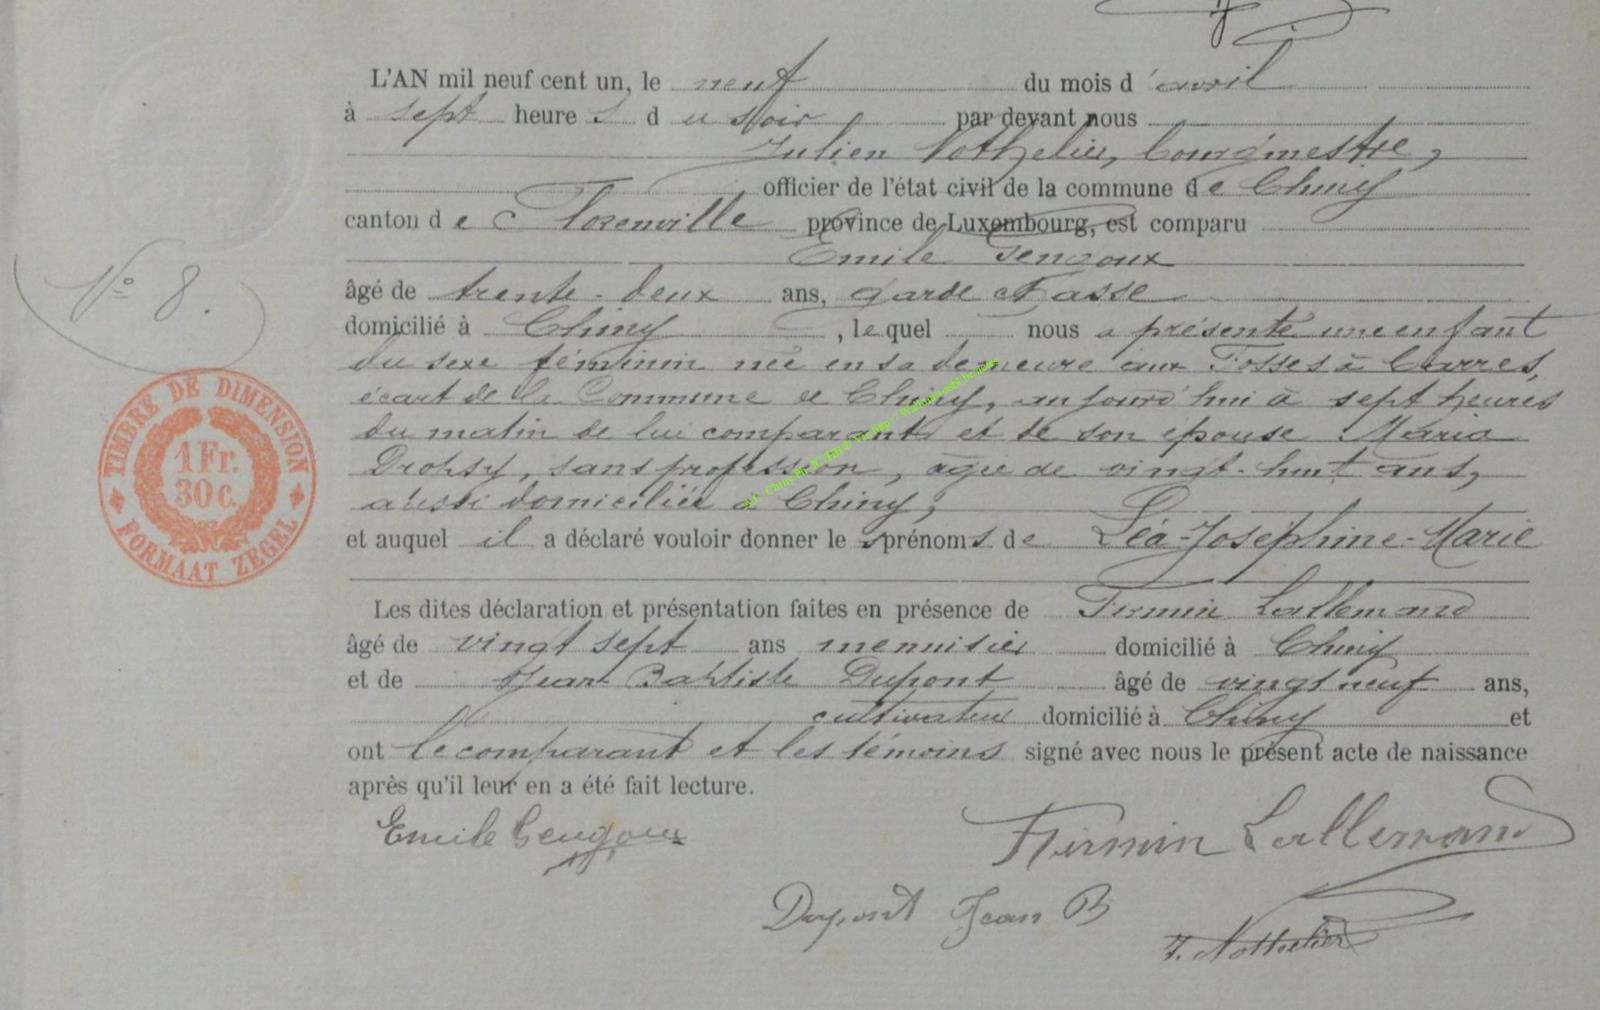 L'AN mil neuf cent un, le neuf du mois d'avril
à sept heures du soir par devant nous
Julien Nothelier, bourgmestre,
officier de l'état civil de la commune de Chiny
canton de Florenville province de Luxembourg, est comparu
Emile Gengoux
âgé de trente-deux ans, garde chasse
domicilié à Chiny, lequel nous a présenté une enfant
du sexe féminin née en sa demeure aux Fosses à Carres,
écart de la Commune de Chiny, aujourd'hui à sept heures
du matin de lui comparant et de son épouse Maria
Dropsy, sans profession, âgée de vingt-huit ans,
aussi domiciliée à Chiny;
et auquel il a déclaré vouloir donner les prénoms de Léa-Joséphine-Marie
Les dites déclaration et présentation faites en présence de Firmin Lallemand
âgé de vingt sept ans menuisier domicilié à Chiny
et de Jean Baptiste Dupont âgé de vingt neuf ans,
cultivateur domicilié à Chiny et
ont le comparant et les témoins signé avec nous le présent acte de naissance
après qu'il leur en a été fait lecture.
N° 8.
TIMBRE DE DIMENSION
1 Fr.
30 c.
FORMAAT ZEGEL
Emile Gengoux
Firmin Lallemand
Dupont Jean B
J. Nothelier